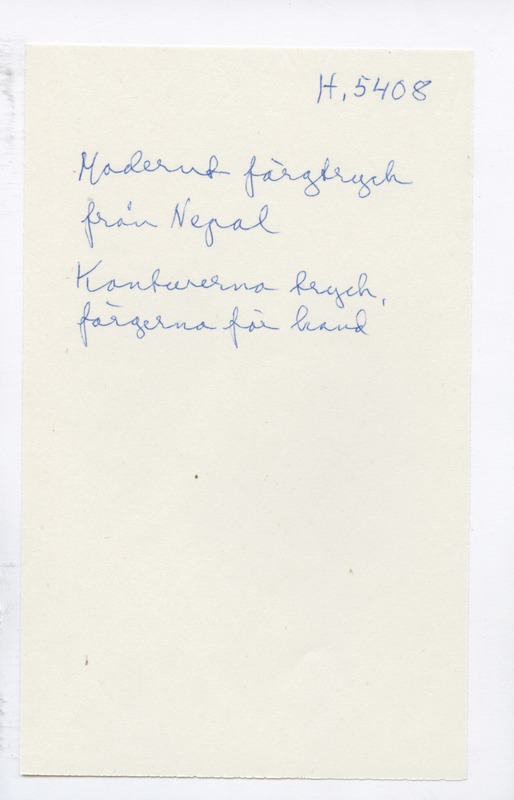 H. 5408
Modernt färgtryck
från Nepal
Konturerna tryck,
färgerna för hand